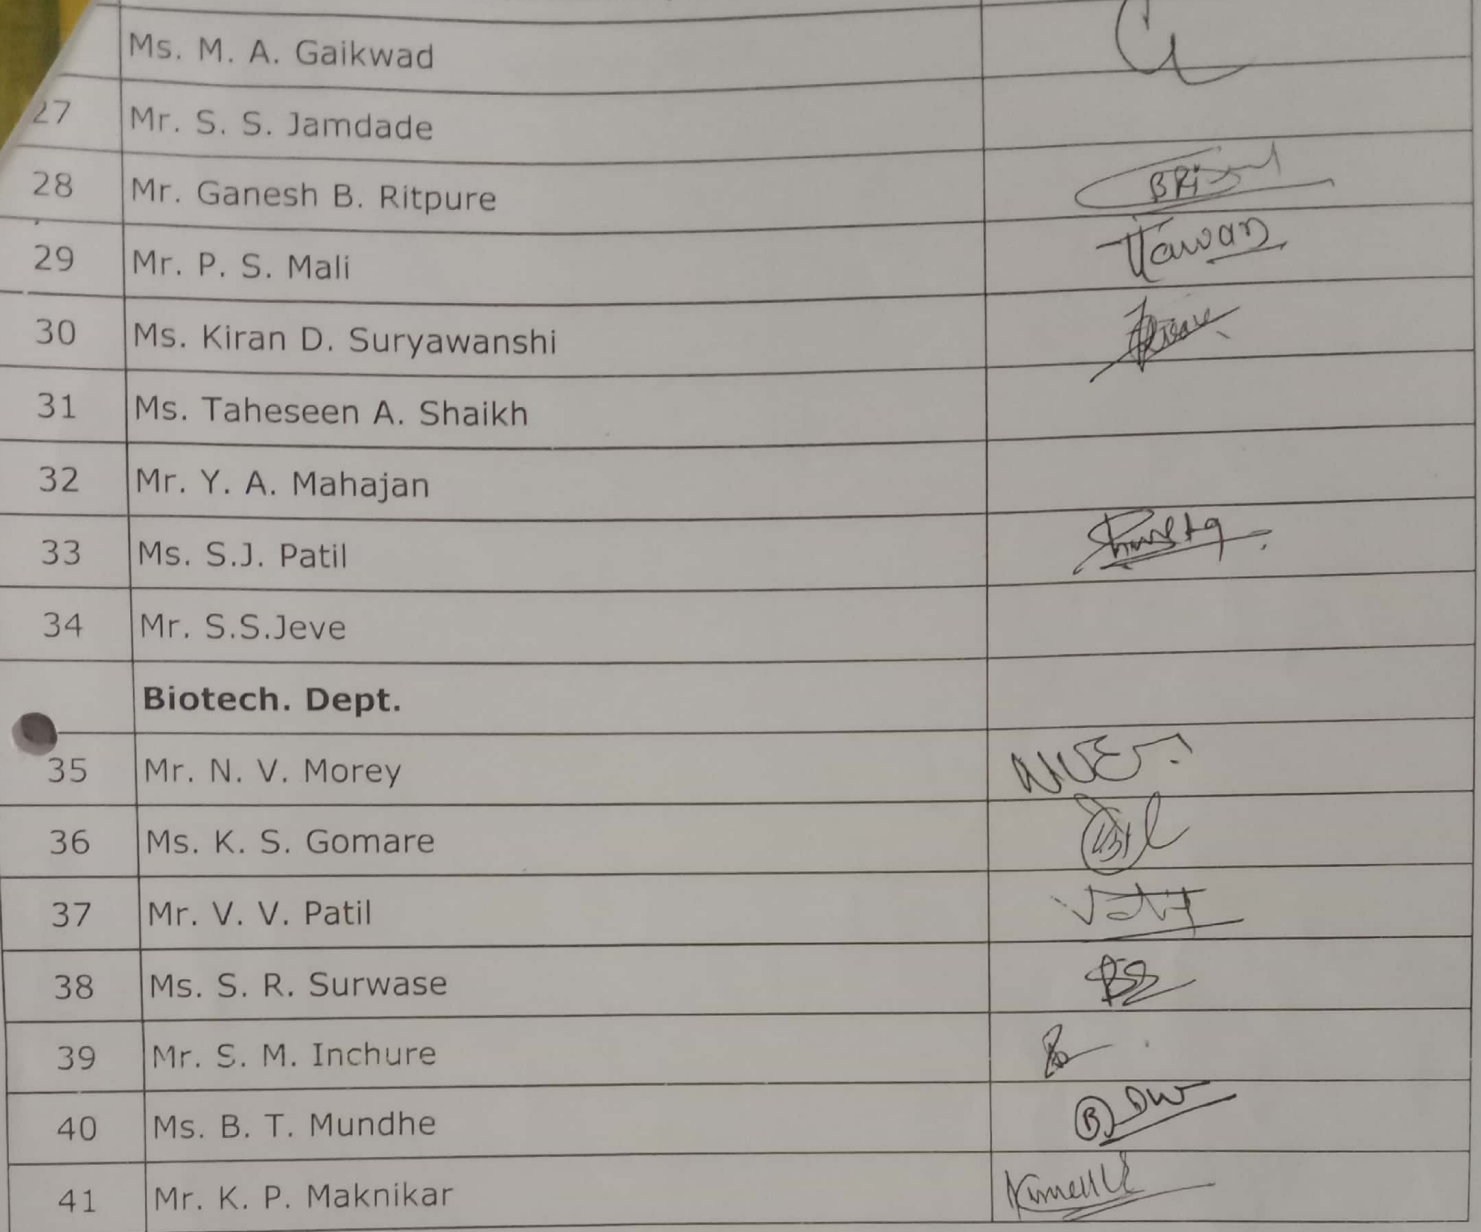 Ms. M. A. Gaikwad
27 Mr. S. S. Jamdade
28 Mr. Ganesh B. Ritpure
29 Mr. P. S. Mali
30 Ms. Kiran D. Suryawanshi
31 Ms. Taheseen A. Shaikh
32 Mr. Y. A. Mahajan
33 Ms. S.J. Patil
34 Mr. S.S.Jeve
Biotech. Dept.
35 Mr. N. V. Morey
36 Ms. K. S. Gomare
37 Mr. V. V. Patil
38 Ms. S. R. Surwase
39 Mr. S. M. Inchure
40 Ms. B. T. Mundhe
41 Mr. K. P. Maknikar